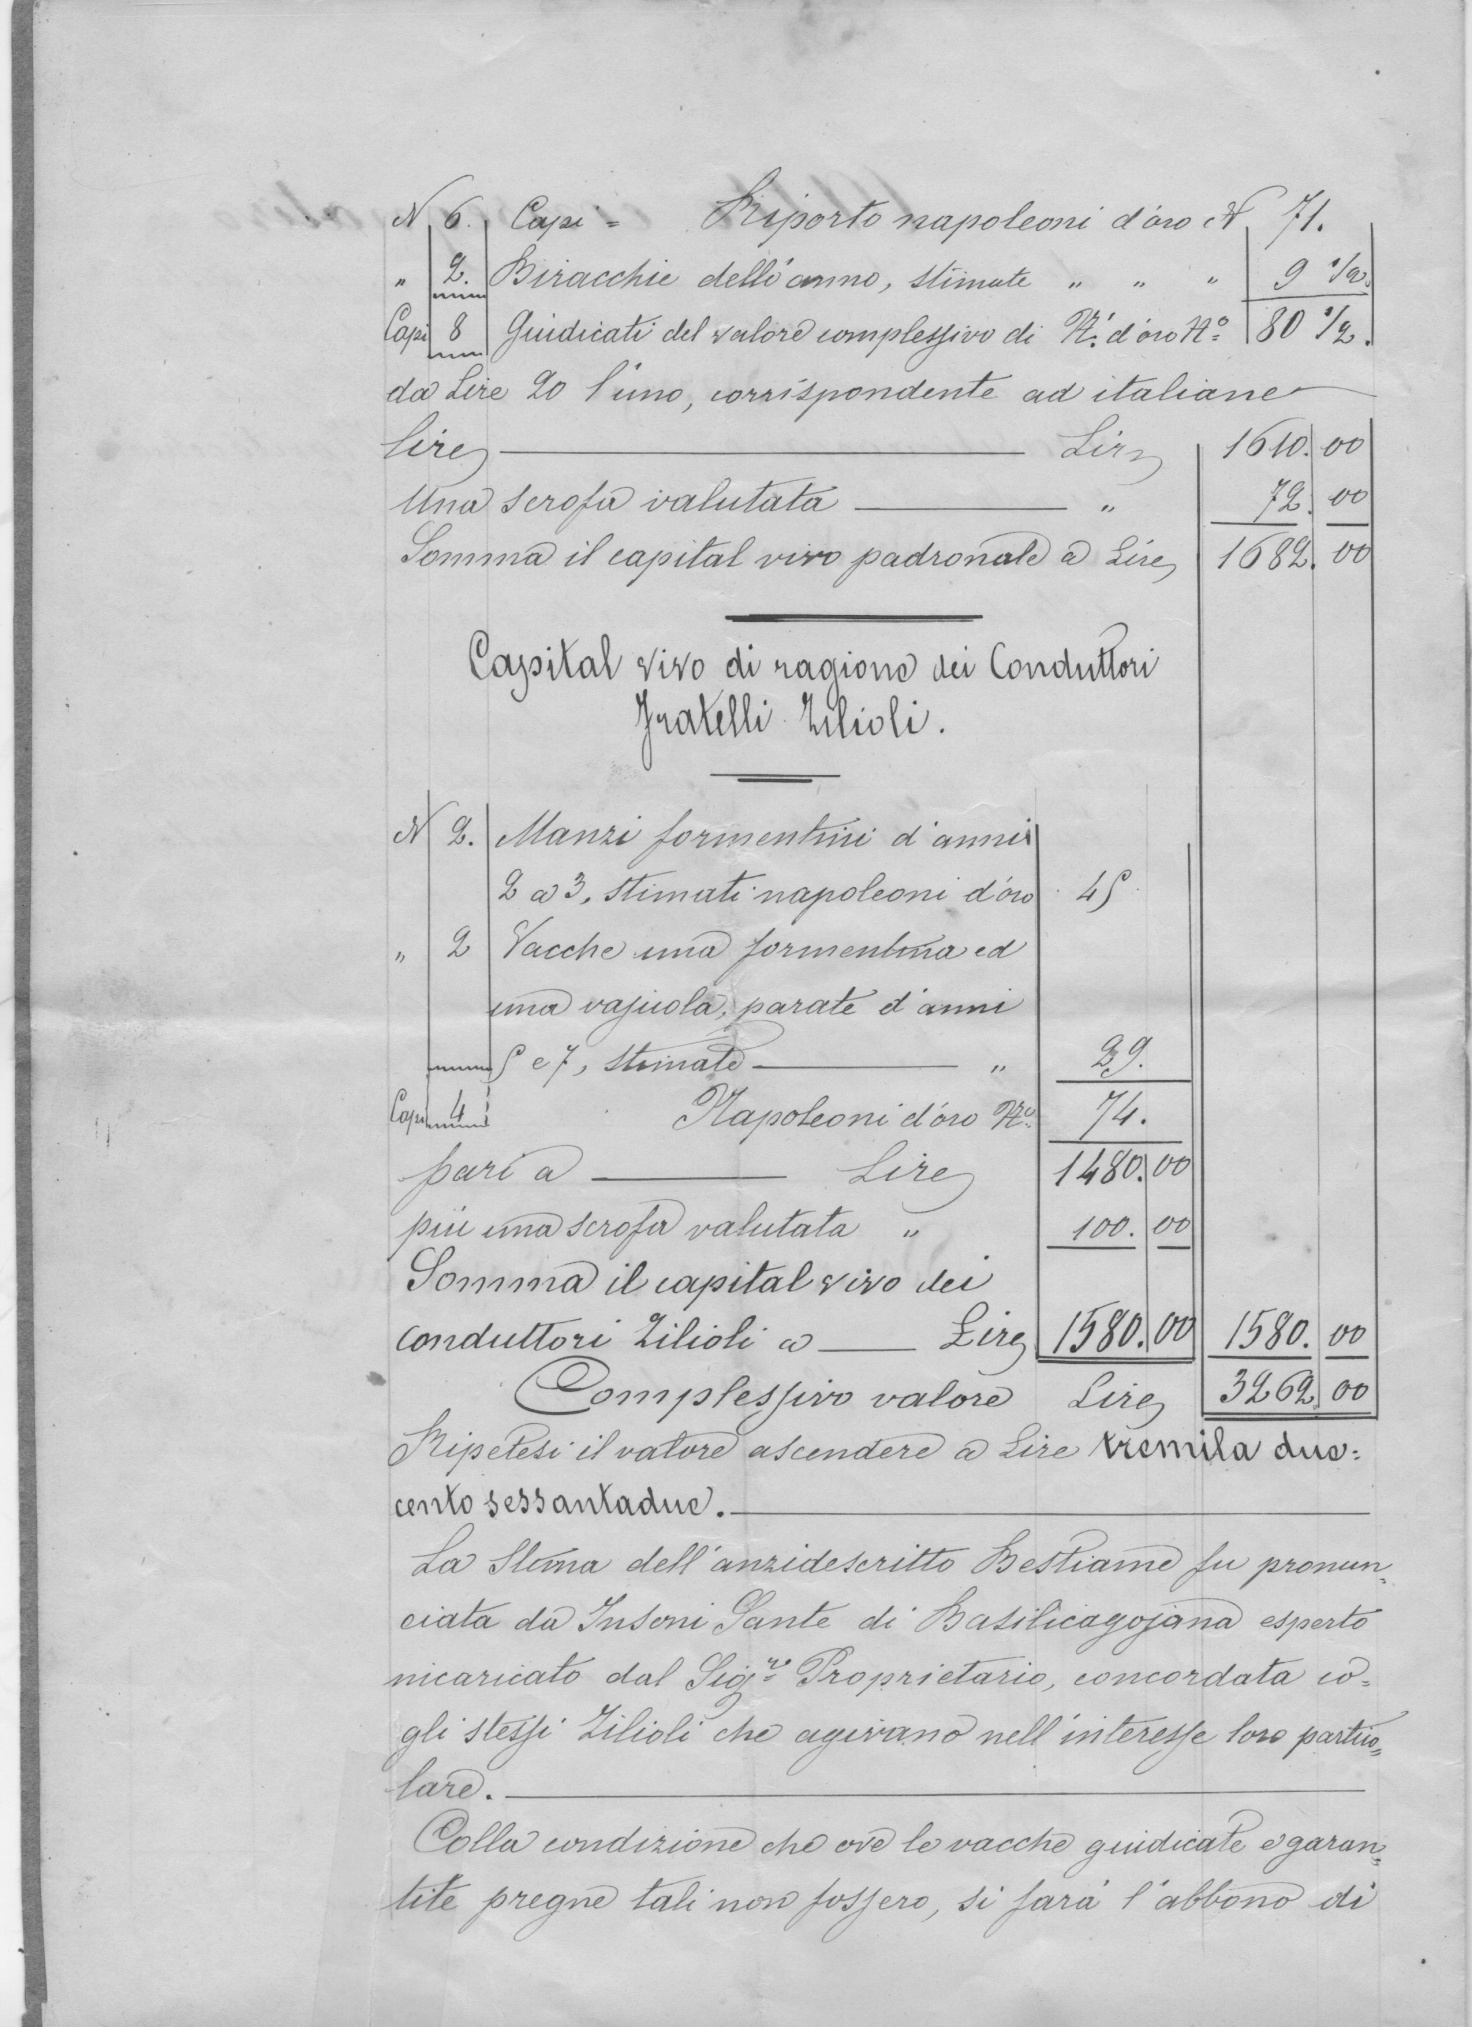 N 6. Capi = Riporto napoleoni d'oro N 71.
" 2. Biracchie dell'anno, stimate " " " 9 1/2.
Capi 8 Giudicati del valore complessivo di N.i d'oro N.o 80 1/2.
da Lire 20 l'uno, corrispondente ad italiane
lire Lire 1610. 00
Una scrofa valutata " 72. 00
Somma il capital vivo padronale a Lire 1682. 00
Capital vivo di ragione dei Conduttori
Fratelli Zilioli.
N 2. Manzi formentini d'anni
2 a 3, stimati napoleoni d'oro 45
" 2 Vacche una formentina ed
una vajuola, parate d'anni
5 e 7, stimate " 29.
Capi 4 Napoleoni d'oro N.o 74.
pari a Lire 1480. 00
più una scrofa valutata " 100. 00
Somma il capital vivo dei
conduttori Zilioli a Lire 1580. 00 1580. 00
Complessivo valore Lire 3262. 00
Ripetesi il valore ascendere a Lire tremila due=
cento sessantadue.
La Stima dell'anzidescritto Bestiame fu pronun=
ciata da Insoni Sante di Basilicagojana esperto
incaricato dal Sig.r Proprietario, concordata co=
gli stessi Zilioli che agivano nell'interesse loro partico=
lare.
Colla condizione che ove le vacche giudicate e garan=
tite pregne tali non fossero, si farà l'abbono di